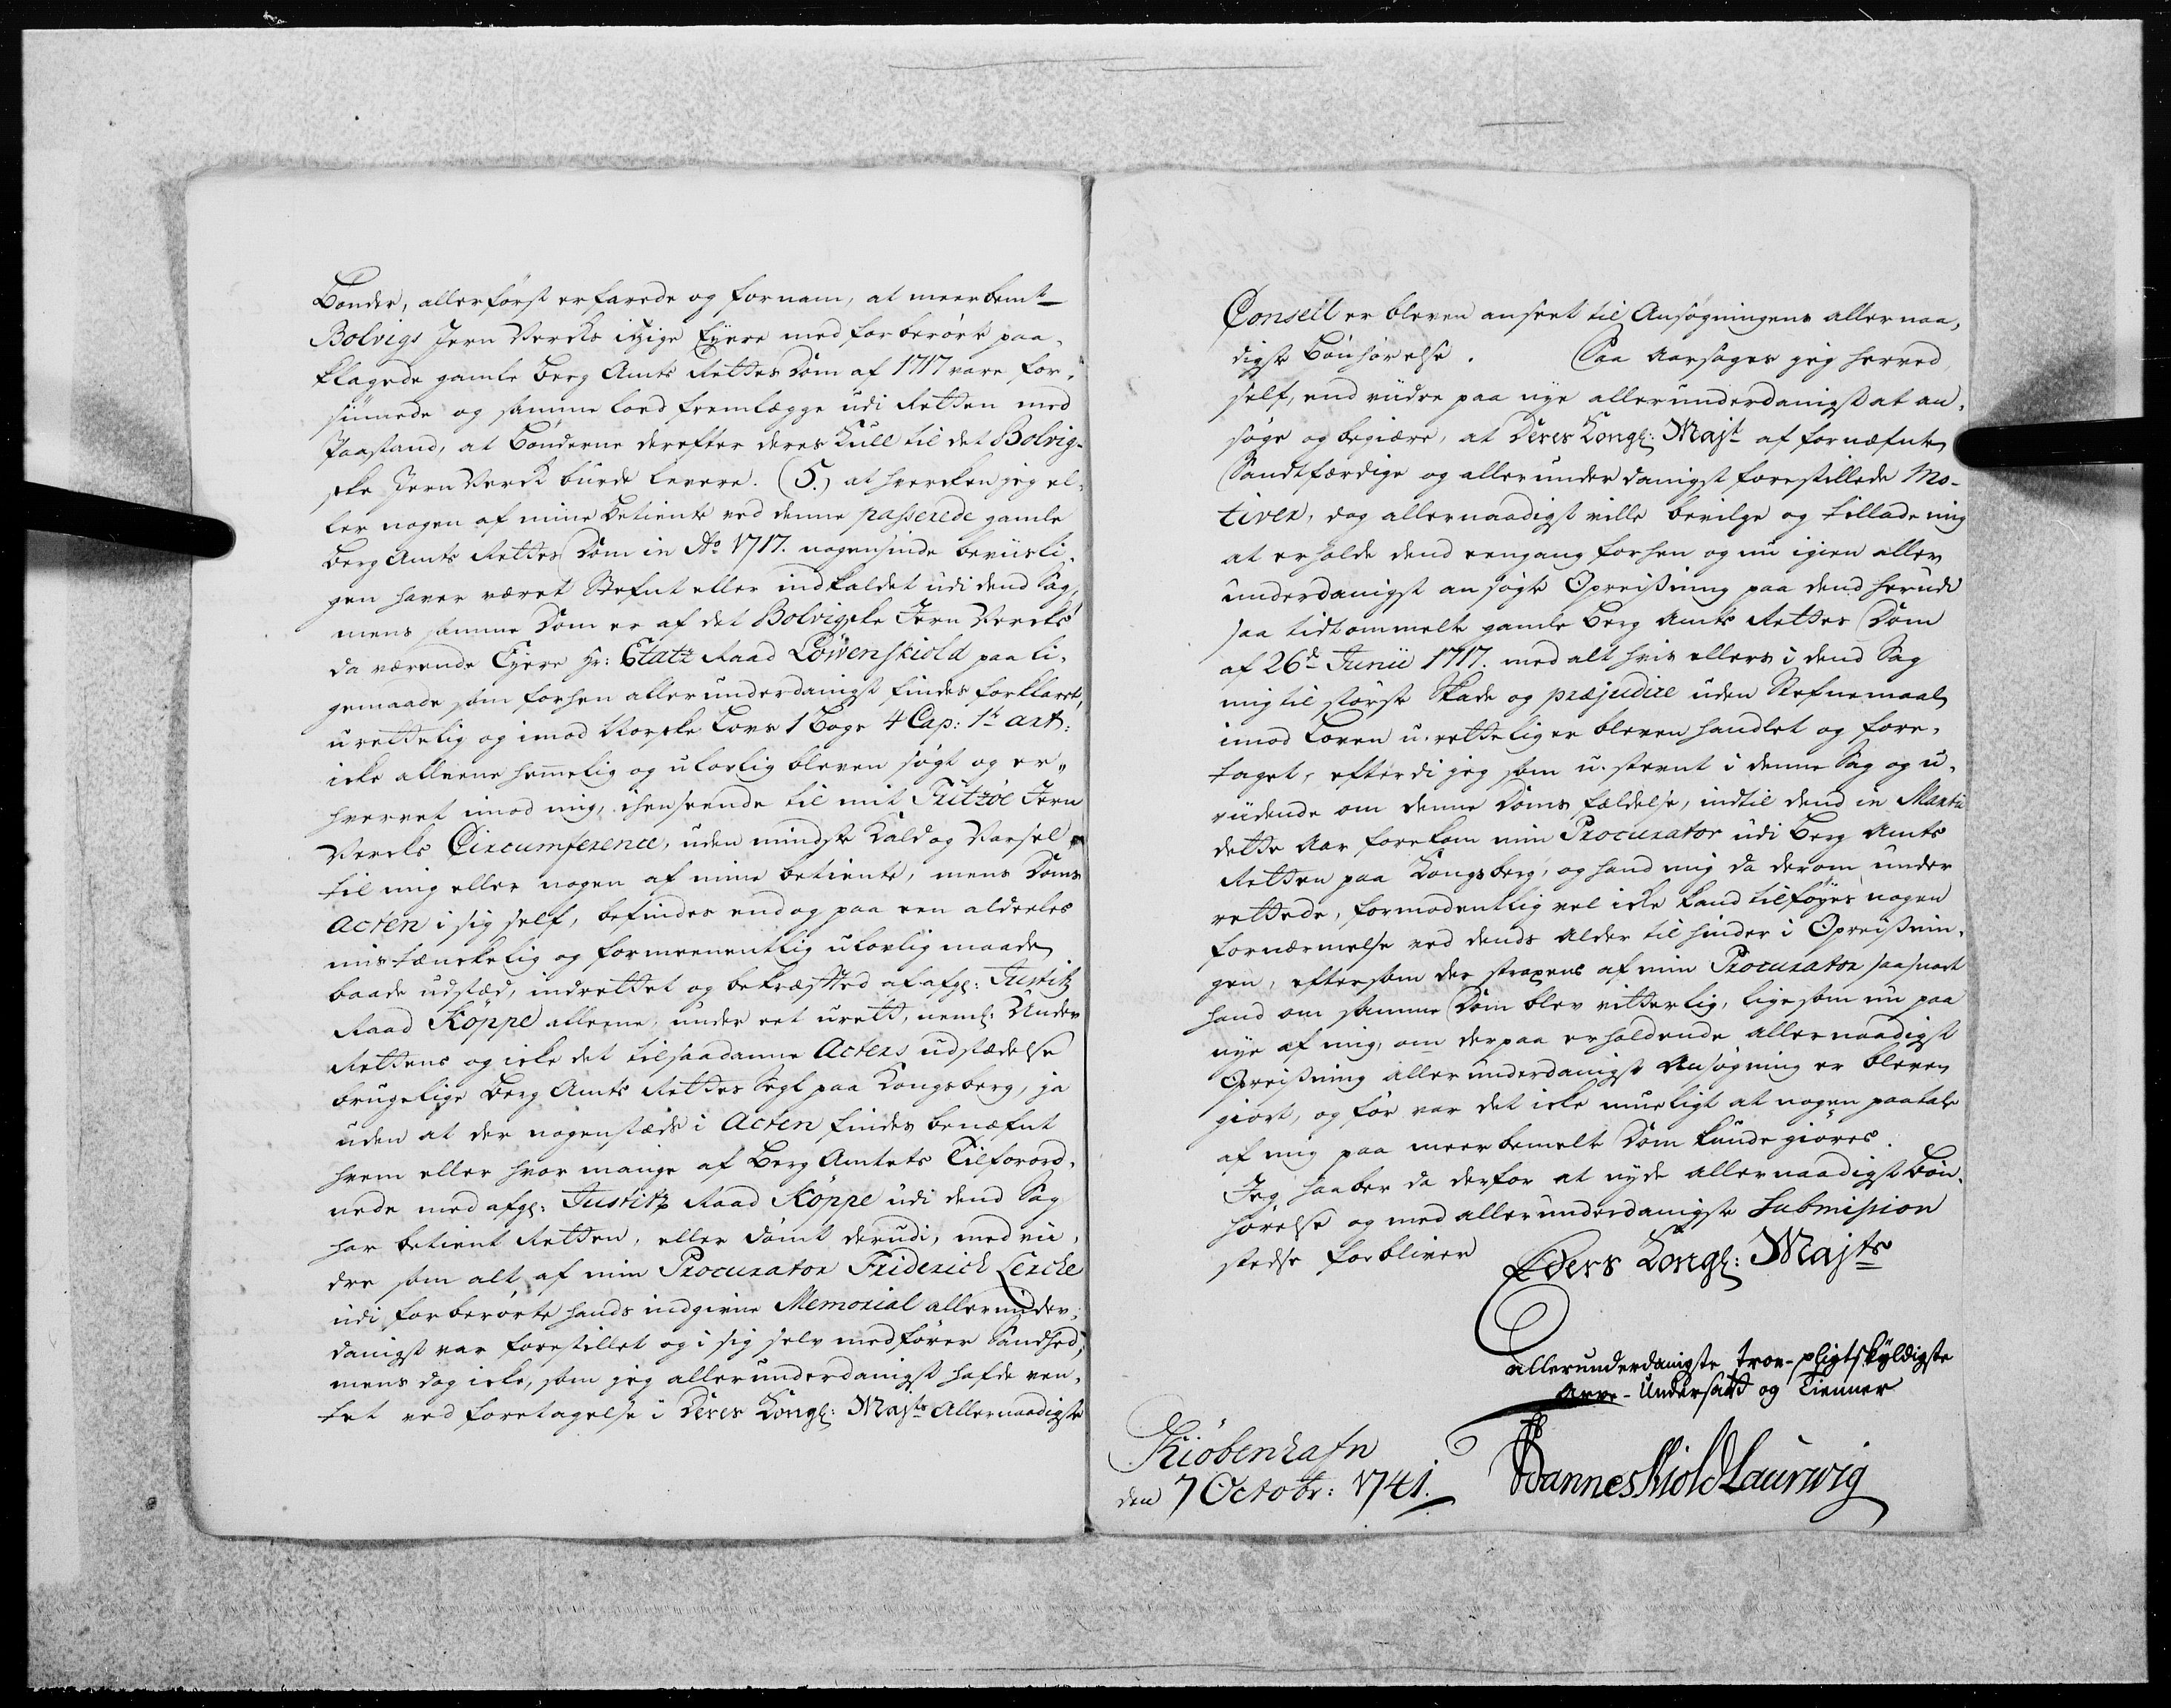 Bønder, allerførst erfarede og fornam, at meerbemte
Bolvigs Jern Vercks itzige Eyere med forberørte paa-
klagede gamle Berg Amts Rettes Dom af 1717 vare for-
siunede og samme lood fremlægge udi Retten med
Paastand, at Bønderne derefter deres Kull til det Bolvig-
ske Jern Verck burde levere. (5.) at hvercken jeg el-
ler nogen af mine Betiente ved denne passerede gamle
Berg Amts Rettes Dom in Ao 1717. nogensinde beviisli-
gen haver været Stefnt eller indkaldet udi dend Sag,
mens samme Dom er af det Bolvigske Jern Vercks
da værende Eyere Hr: Etatz Raad Löwenskiold paa li-
gemaade som forhen allerunderdanigst findes forklaret,
urettelig og imod Norske Lovs 1 Bogs 4 Cap: 1te art:
icke alleene hemmelig og ulovlig bleven søgt og er-
hvervet imod mig, ihenseende til mit Fritzöe Jern
Vercks Circumference, uden mindste Kald og Varsel
til mig eller nogen af mine betiente, mens Doms
Acten i sig self, befindes endog paa een aldeeles
mistænckelig og formeenentlig ulovlig maade
baade udstæd, indrettet og bekræftted af afg: Justitz
Raad Köppe alleene, under eet urett, neml: Under
Rettens og icke det til saadanne Acters udstædelse
brugelige Berg Amts Rettes Segl paa Kongsberg, ja
uden at der nogenstæds i Acten findes benæfnt
hvem eller hvor mange af Berg Amtets Tilforord-
nede med afg: Justitz Raad Köppe udi dend Sag
har betient Retten, eller dømt derudi, med vi-
dre som alt af min Procurator Friderich Lerche
udi forberørte hands indgivne Memorial allerunder-
danigst var forestillet og i sig selv medfører Sandhed;
mens dog icke, som jeg allerunderdanigst hafde ven-
tet ved foretagelse i Deres Kongl: Majts Allernaadigste
Conseil er bleven anseet til Ansøgningens allernaa-
digste Bønhørelse. Saa aarsages jeg herved
self, end viidre paa nye allerunderdanigst at an-
søge og begiære, at Deres Kongl: Majt af fornæfnte
Sandtfærdige og allerunderdanigst forestillede Mo-
tiver, dog allernaadigst ville bevilge og tillade mig
at erholde dend eengang forhen og nu igien aller
underdanigst ansøgte Opreisning paa dend herudi
saa tidt ommelte gamle Berg Amts Rettes Dom
af 26de Junii 1717. med alt hvis ellers i dend Sag
mig til største Skade og præjudice uden Stefnemaal
imod Loven u-rettelig er bleven handlet og fore-
taget, efterdi jeg som u-stevnt i denne Sag og u-
viidende om denne Doms fældelse, indtil dend in Martii
dette Aar forekom min Procurator udi Berg Amts
Retten paa Kongsberg, og hand mig da derom under
rettede, formodentlig vel icke kand tilføyes nogen
fornærmelse ved dends Alder til hinder i Opreisnin-
gen, eftersom der straxens af min Procurator saasnart
hand om samme Dom blev vitterlig, ligesom nu paa
nye af mig, om derpaa erholdende allernaadigst
Opreisning allerunderdanigst Ansøgning er bleven
giort, og før var det icke mueligt at nogen paatale
af mig paa meerbemelte Dom kunde giøres.
Jeg haaber da derfor at nyde allernaadigst Bøn-
hørelse og med allerunderdanigste Submission
stedse forbliver
Eders Kongl: Majts
allerunderdanigste troe-pligtskyldigste
Arve-Undersaatt og Tienner
Kiöbenhafn
den 7 Octobr: 1741.
Danneskiold Laurwig